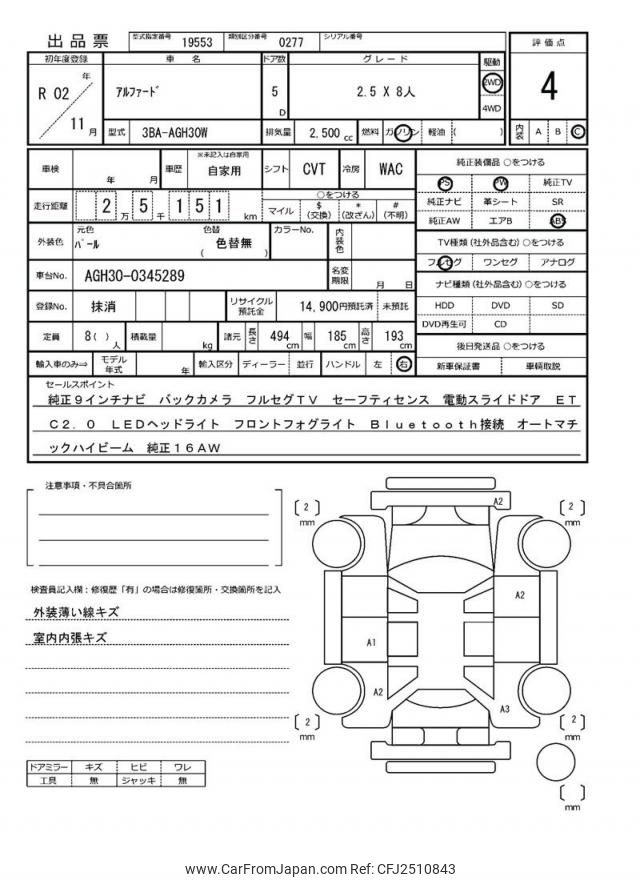 出品票 型式指定番号 19553 類別区分番号 0277 シリアル番号
評価点
4
内装 A B C
初年度登録 車名 ドア数 グレード 駆動
R 02 年 11 月 ｱﾙﾌｧｰﾄﾞ 5 D 2.5 X 8人 2WD 4WD
型式 3BA-AGH30W 排気量 2,500 cc 燃料 ガソリン 軽油 ( )
車検 年 月 車歴 ※未記入は自家用 自家用 シフト CVT 冷房 WAC
走行距離 2万5千151 km ○をつける
マイル $(交換) *(改ざん) #(不明)
外装色 元色 ﾊﾟｰﾙ 色替 ( 色替無 ) カラーNo. 内装色
車台No. AGH30-0345289 名変期限 月 日
登録No. 抹消 リサイクル預託金 14,900円預託済 未預託
定員 8( )人 積載量 kg 諸元 長さ 494 cm 幅 185 cm 高さ 193 cm
輸入車のみ⇒ モデル年式 年 輸入区分 ディーラー 並行 ハンドル 左 右
純正装備品 ○をつける
PS PW 純正TV
純正ナビ 革シート SR
純正AW エアB ABS
TV種類(社外品含む)○をつける
フルセグ ワンセグ アナログ
ナビ種類(社外品含む)○をつける
HDD DVD SD
DVD再生可 CD
後日発送品 ○をつける
新車保証書 車輌取説
セールスポイント
純正９インチナビ バックカメラ フルセグＴＶ セーフティセンス 電動スライドドア ＥＴ
Ｃ２．０ ＬＥＤヘッドライト フロントフォグライト Ｂｌｕｅｔｏｏｔｈ接続 オートマチ
ックハイビーム 純正１６ＡＷ
注意事項・不具合箇所
検査員記入欄：修復歴「有」の場合は修復箇所・交換箇所を記入
外装薄い線キズ
室内内張キズ
ドアミラー キズ ヒビ ワレ
工具 無 ジャッキ 無
A2
[ 2 ] mm
[ 2 ] mm
A2
A1
A2
A3
[ 2 ] mm
[ 2 ] mm
[ ] mm
www.CarFromJapan.com Ref: CFJ2510843